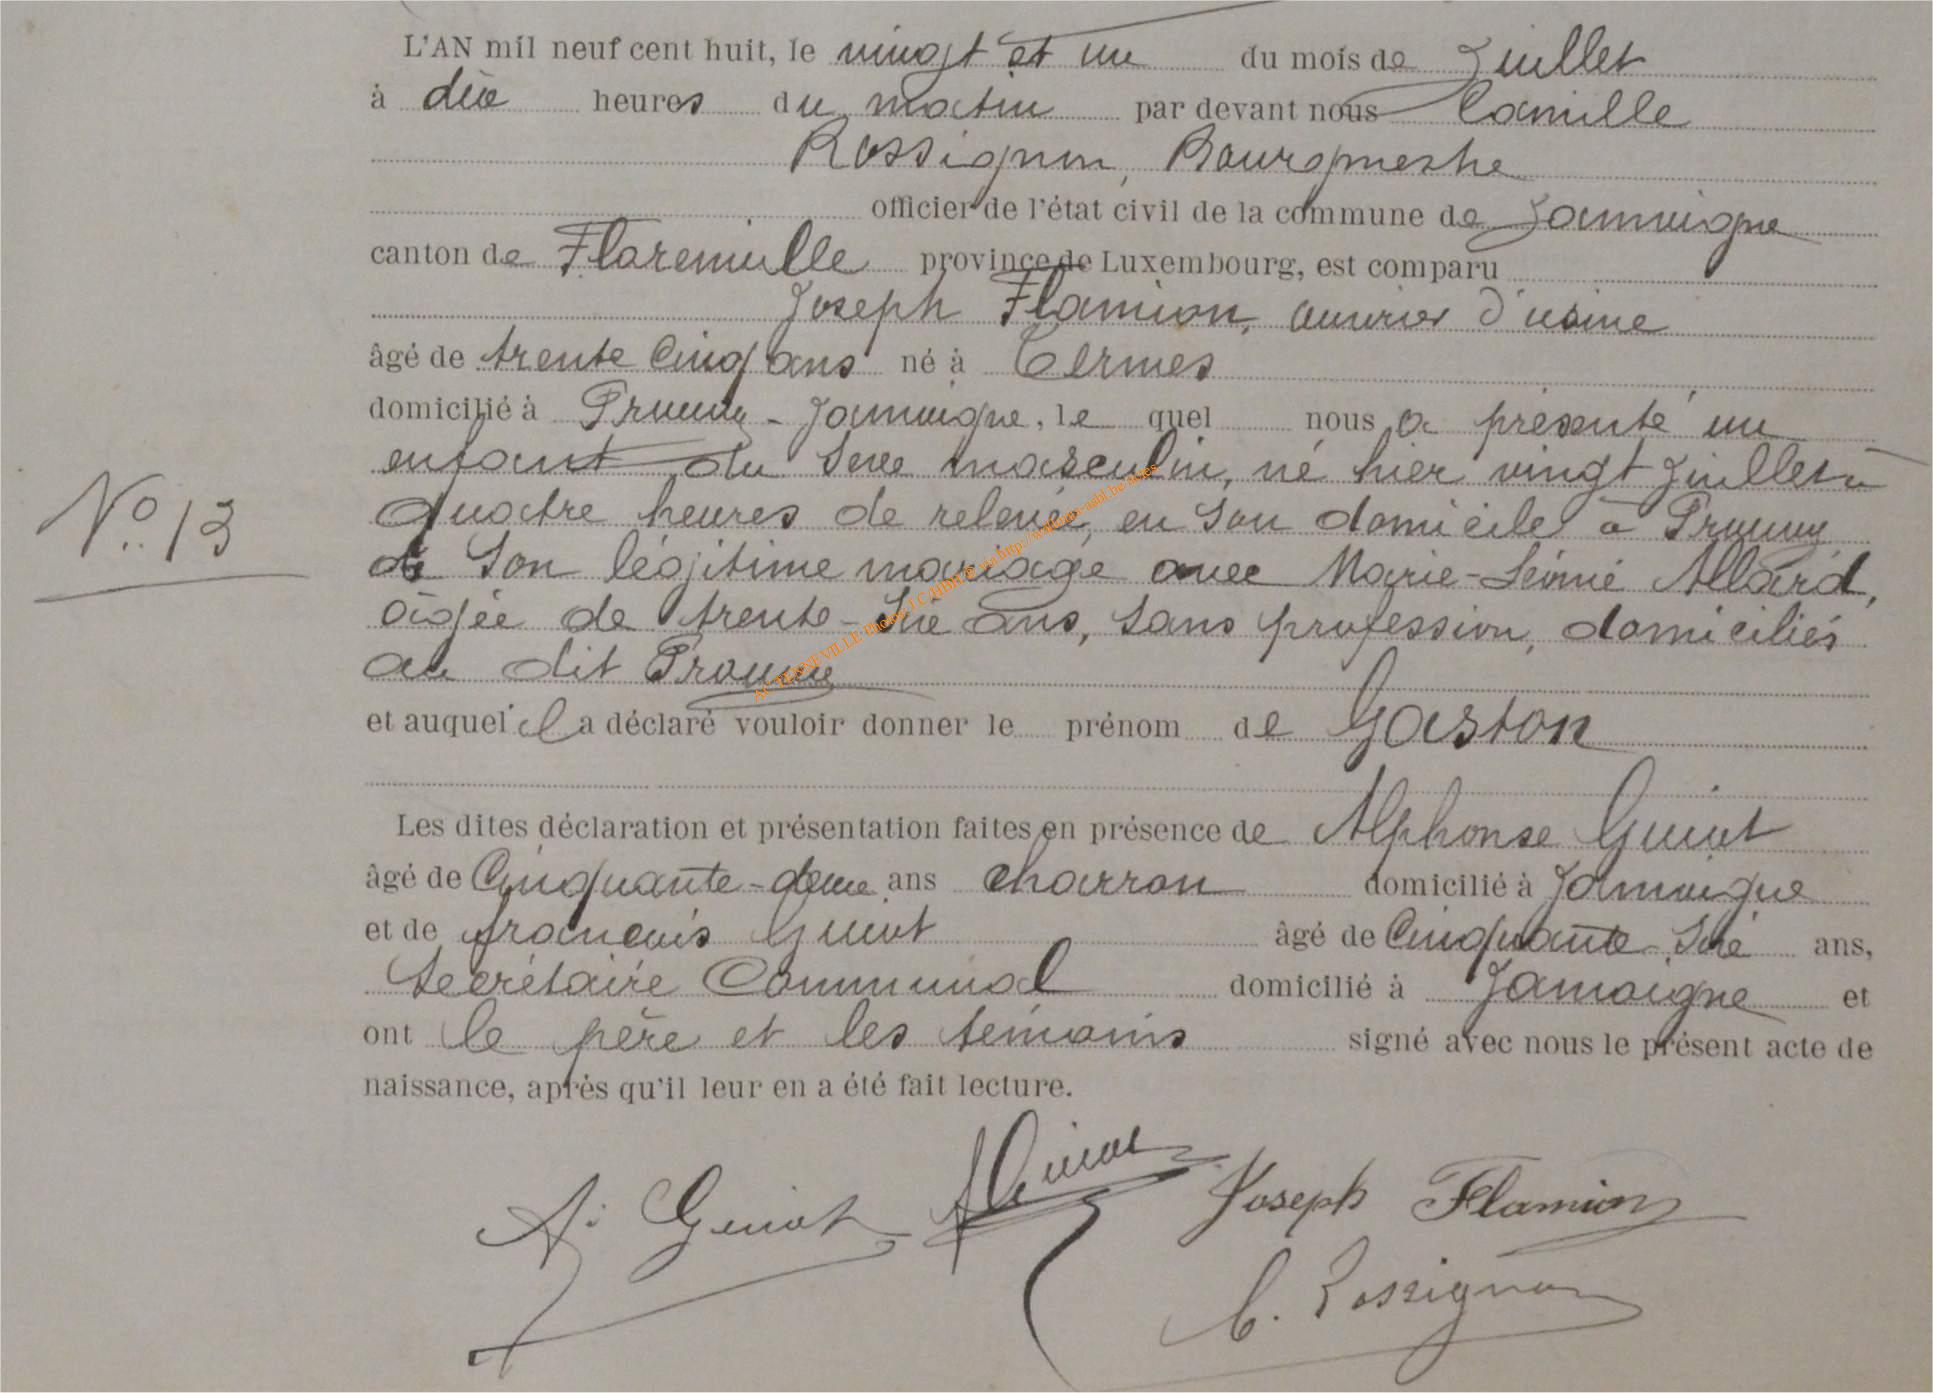 L'AN mil neuf cent huit, le vingt et un du mois de Juillet
à dix heures du matin par devant nous Camille
Rossignon, Bourgmestre
officier de l'état civil de la commune de Jamoigne
canton de Florenville province de Luxembourg, est comparu
Joseph Flamion, ouvrier d'usine
âgé de trente cinq ans né à Termes
domicilié à Prouvy - Jamoigne, le quel nous a présenté un
enfant du sexe masculin, né hier vingt Juillet à
quatre heures de relevée, en son domicile à Prouvy
de son légitime mariage avec Marie-Léonie Allard,
N° 13
âgée de trente-six ans, sans profession, domiciliés
au dit Prouvy
et auquel il a déclaré vouloir donner le prénom de Gaston
Les dites déclaration et présentation faites en présence de Alphonse Guiot
âgé de Cinquante-deux ans charron domicilié à Jamoigne
et de françois Guiot âgé de Cinquante six ans,
Secrétaire Communal domicilié à Jamoigne et
ont le père et les témoins signé avec nous le présent acte de
naissance, après qu'il leur en a été fait lecture.
A. Guiot Guiot Joseph Flamion
C. Rossignon